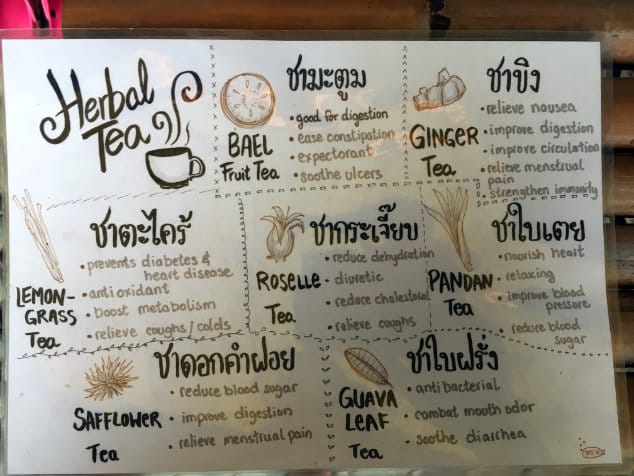 Herbal
Tea
ชามะตูม
BAEL
Fruit Tea
• good for digestion
• ease constipation
• expectorant
• soothe ulcers
ชาขิง
GINGER
Tea
• relieve nausea
• improve digestion
• improve circulation
• relieve menstrual
pain
• strengthen immunity
ชาตะไคร้
LEMON-
GRASS
Tea
• prevents diabetes &
heart disease
• antioxidant
• boost metabolism
• relieve coughs/colds
ชากระเจี๊ยบ
ROSELLE
Tea
• reduce dehydration
• diuretic
• reduce cholesterol
• relieve coughs
ชาใบเตย
PANDAN
Tea
• nourish heart
• relaxing
• improve blood
pressure
• reduce blood
sugar
ชาดอกคำฝอย
SAFFLOWER
Tea
• reduce blood sugar
• improve digestion
• relieve menstrual pain
ชาใบฝรั่ง
GUAVA
LEAF
Tea
• antibacterial
• combat mouth odor
• soothe diarrhea